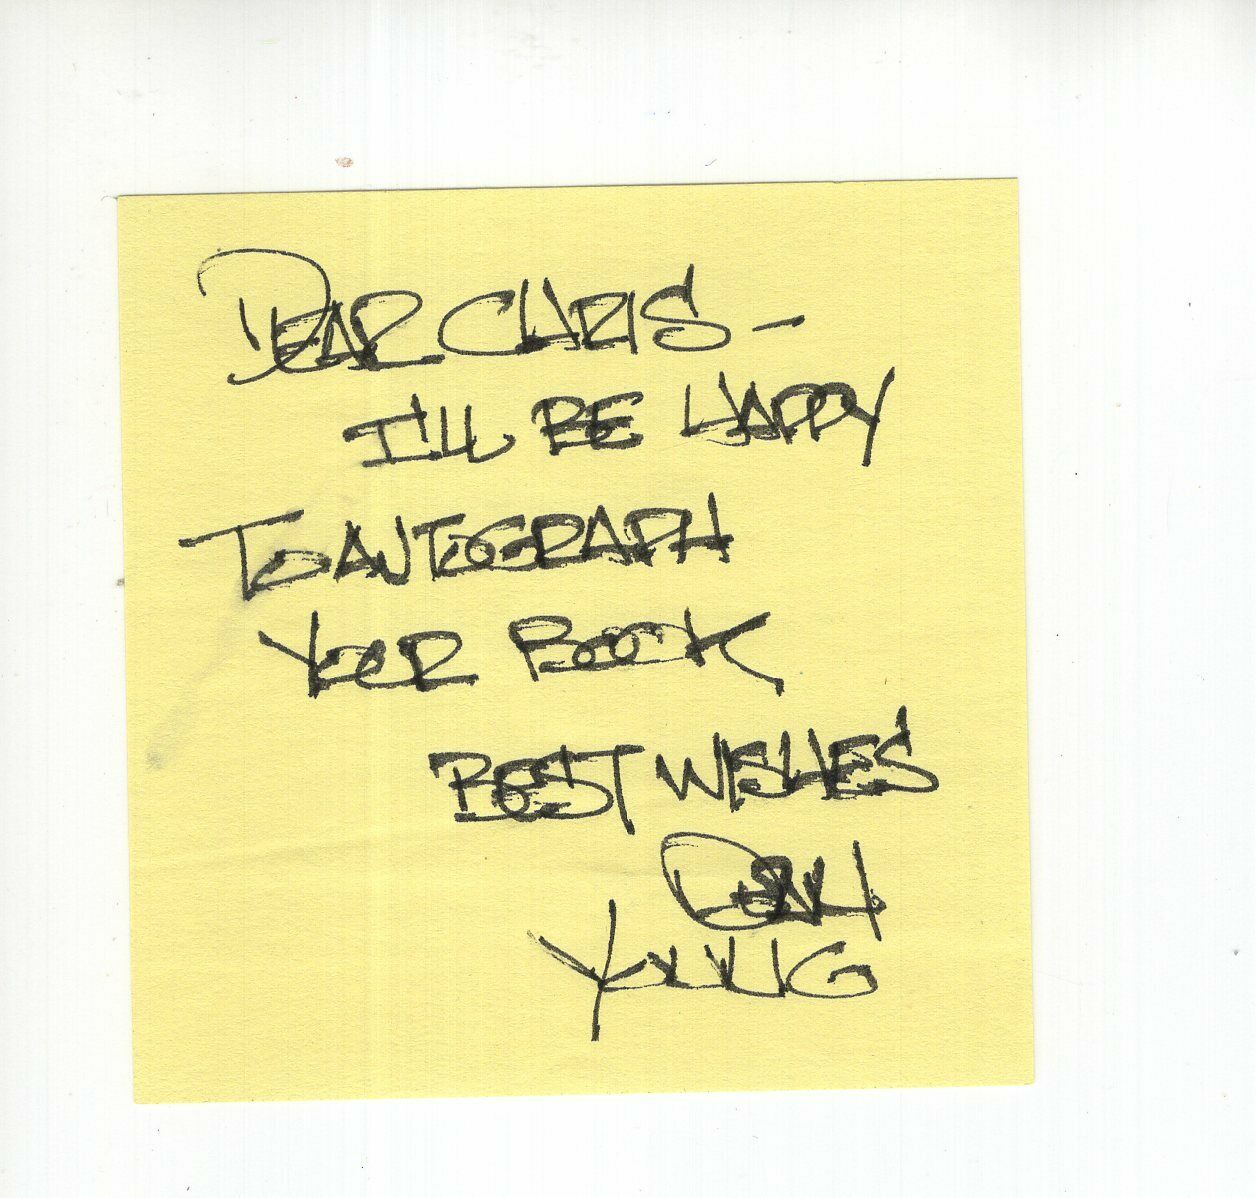 DEAR CHRIS –
I'LL BE HAPPY
TO AUTOGRAPH
YOUR BOOK
BEST WISHES
YOUNG